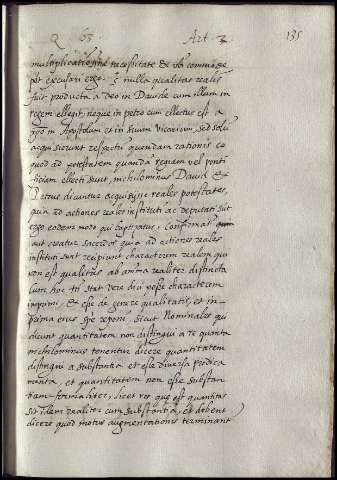 Q 63. Art 3. 135
multiplicatio sine necessitate de ob commode
pot executari ergo. 3 nulla qualitas realis
fuit producta a deo in Davide cum illum in
regem ellegit, neque in petro cum ellectus est a
xpo in Apostolum et in suum Vicarium, sed solu
acquisierunt respectu quendam rationis eo
quod ad potestatem quanda regiam vel ponti
ficiam ellecti sunt, nichilominus David &
Petrus dicuntur acquisijsse reales potestates,
quia ad actiones reales instituti ac deputati sut
ergo eodem modo qui baptizatur, confirmat
aut creatur sacerdos quia ad actiones reales
instituti sunt recipiunt characterem realem qui
non est qualitas ab anima realiter distincta
cum hoc tn stat vere dici posse characterem
imprimi, & esse de genere qualitatis, et in
prima eius spe reponi, sicut Nominales qui
dicunt quantitatem non distingui a re quanta
nichilominus tenentur dicere quantitatem
distingui a substantia et esse diversa predica
menta, et quantitatem non esse substan
tiam formaliter, licet res que est quantitas
sit idem realiter cum substantia, et debent
dicere quod motus augmentationis terminant